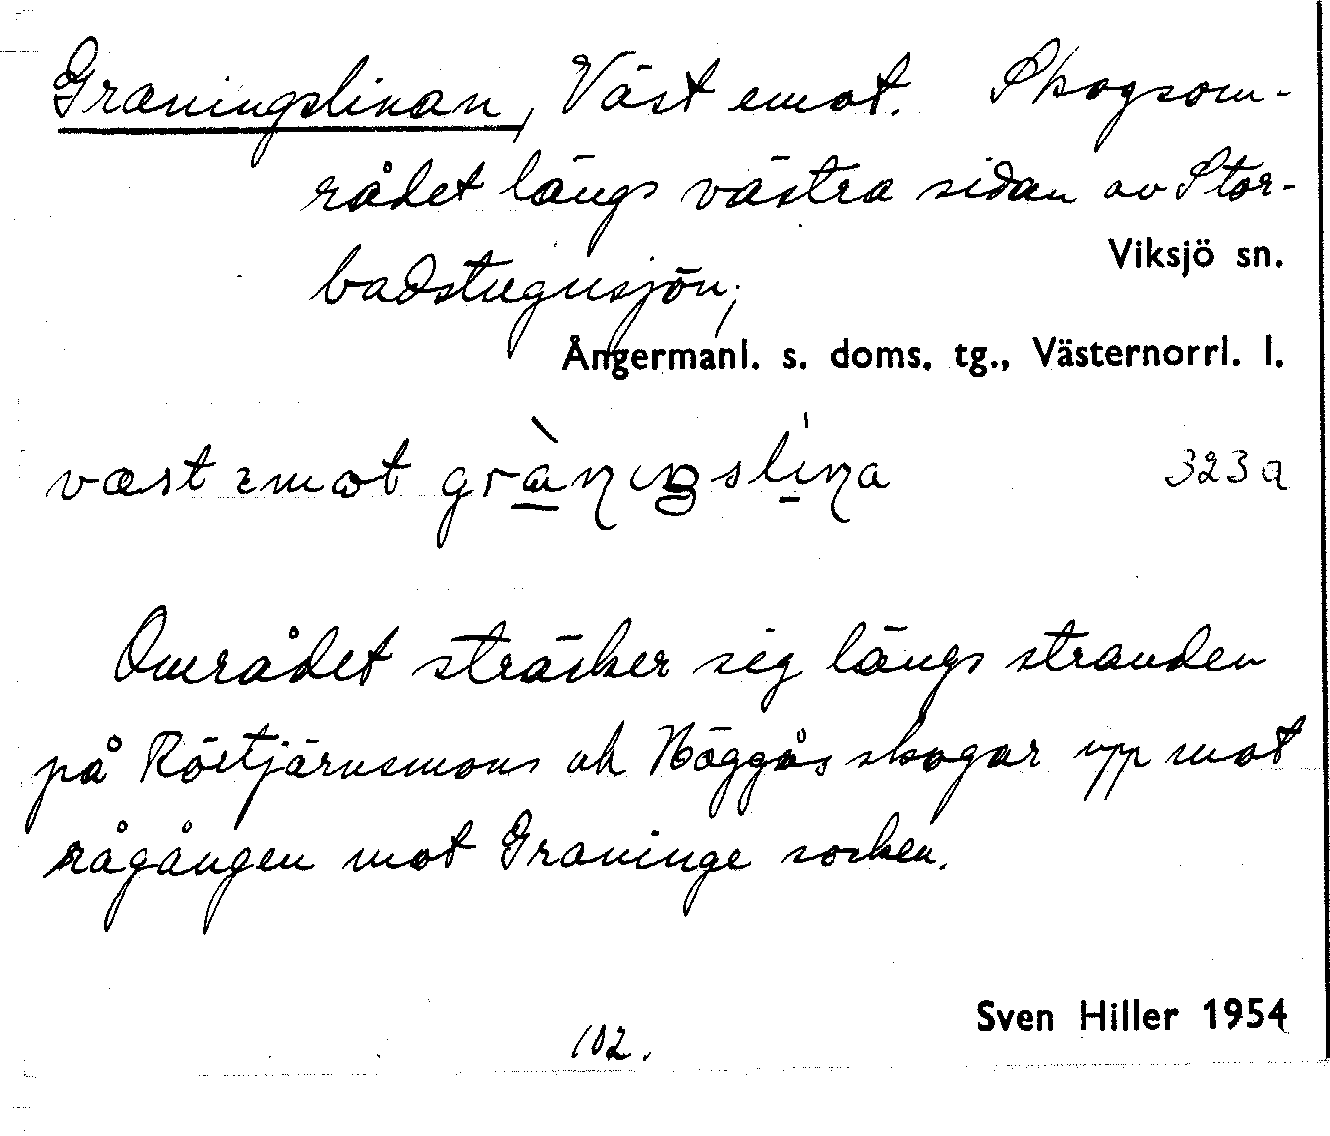 Graningslinan, Väst emot. Skogsom-
rådet längs västra sidan av Stor-
badstugusjön;
Viksjö sn.
Ångermanl. s. doms. tg., Västernorrl. l.
væst emot gràningslina 323a
Området sträcker sig längs stranden
på Rörtjärnsmons och Häggås skogar upp mot
rågången mot Graninge socken.
Sven Hiller 1954
102.